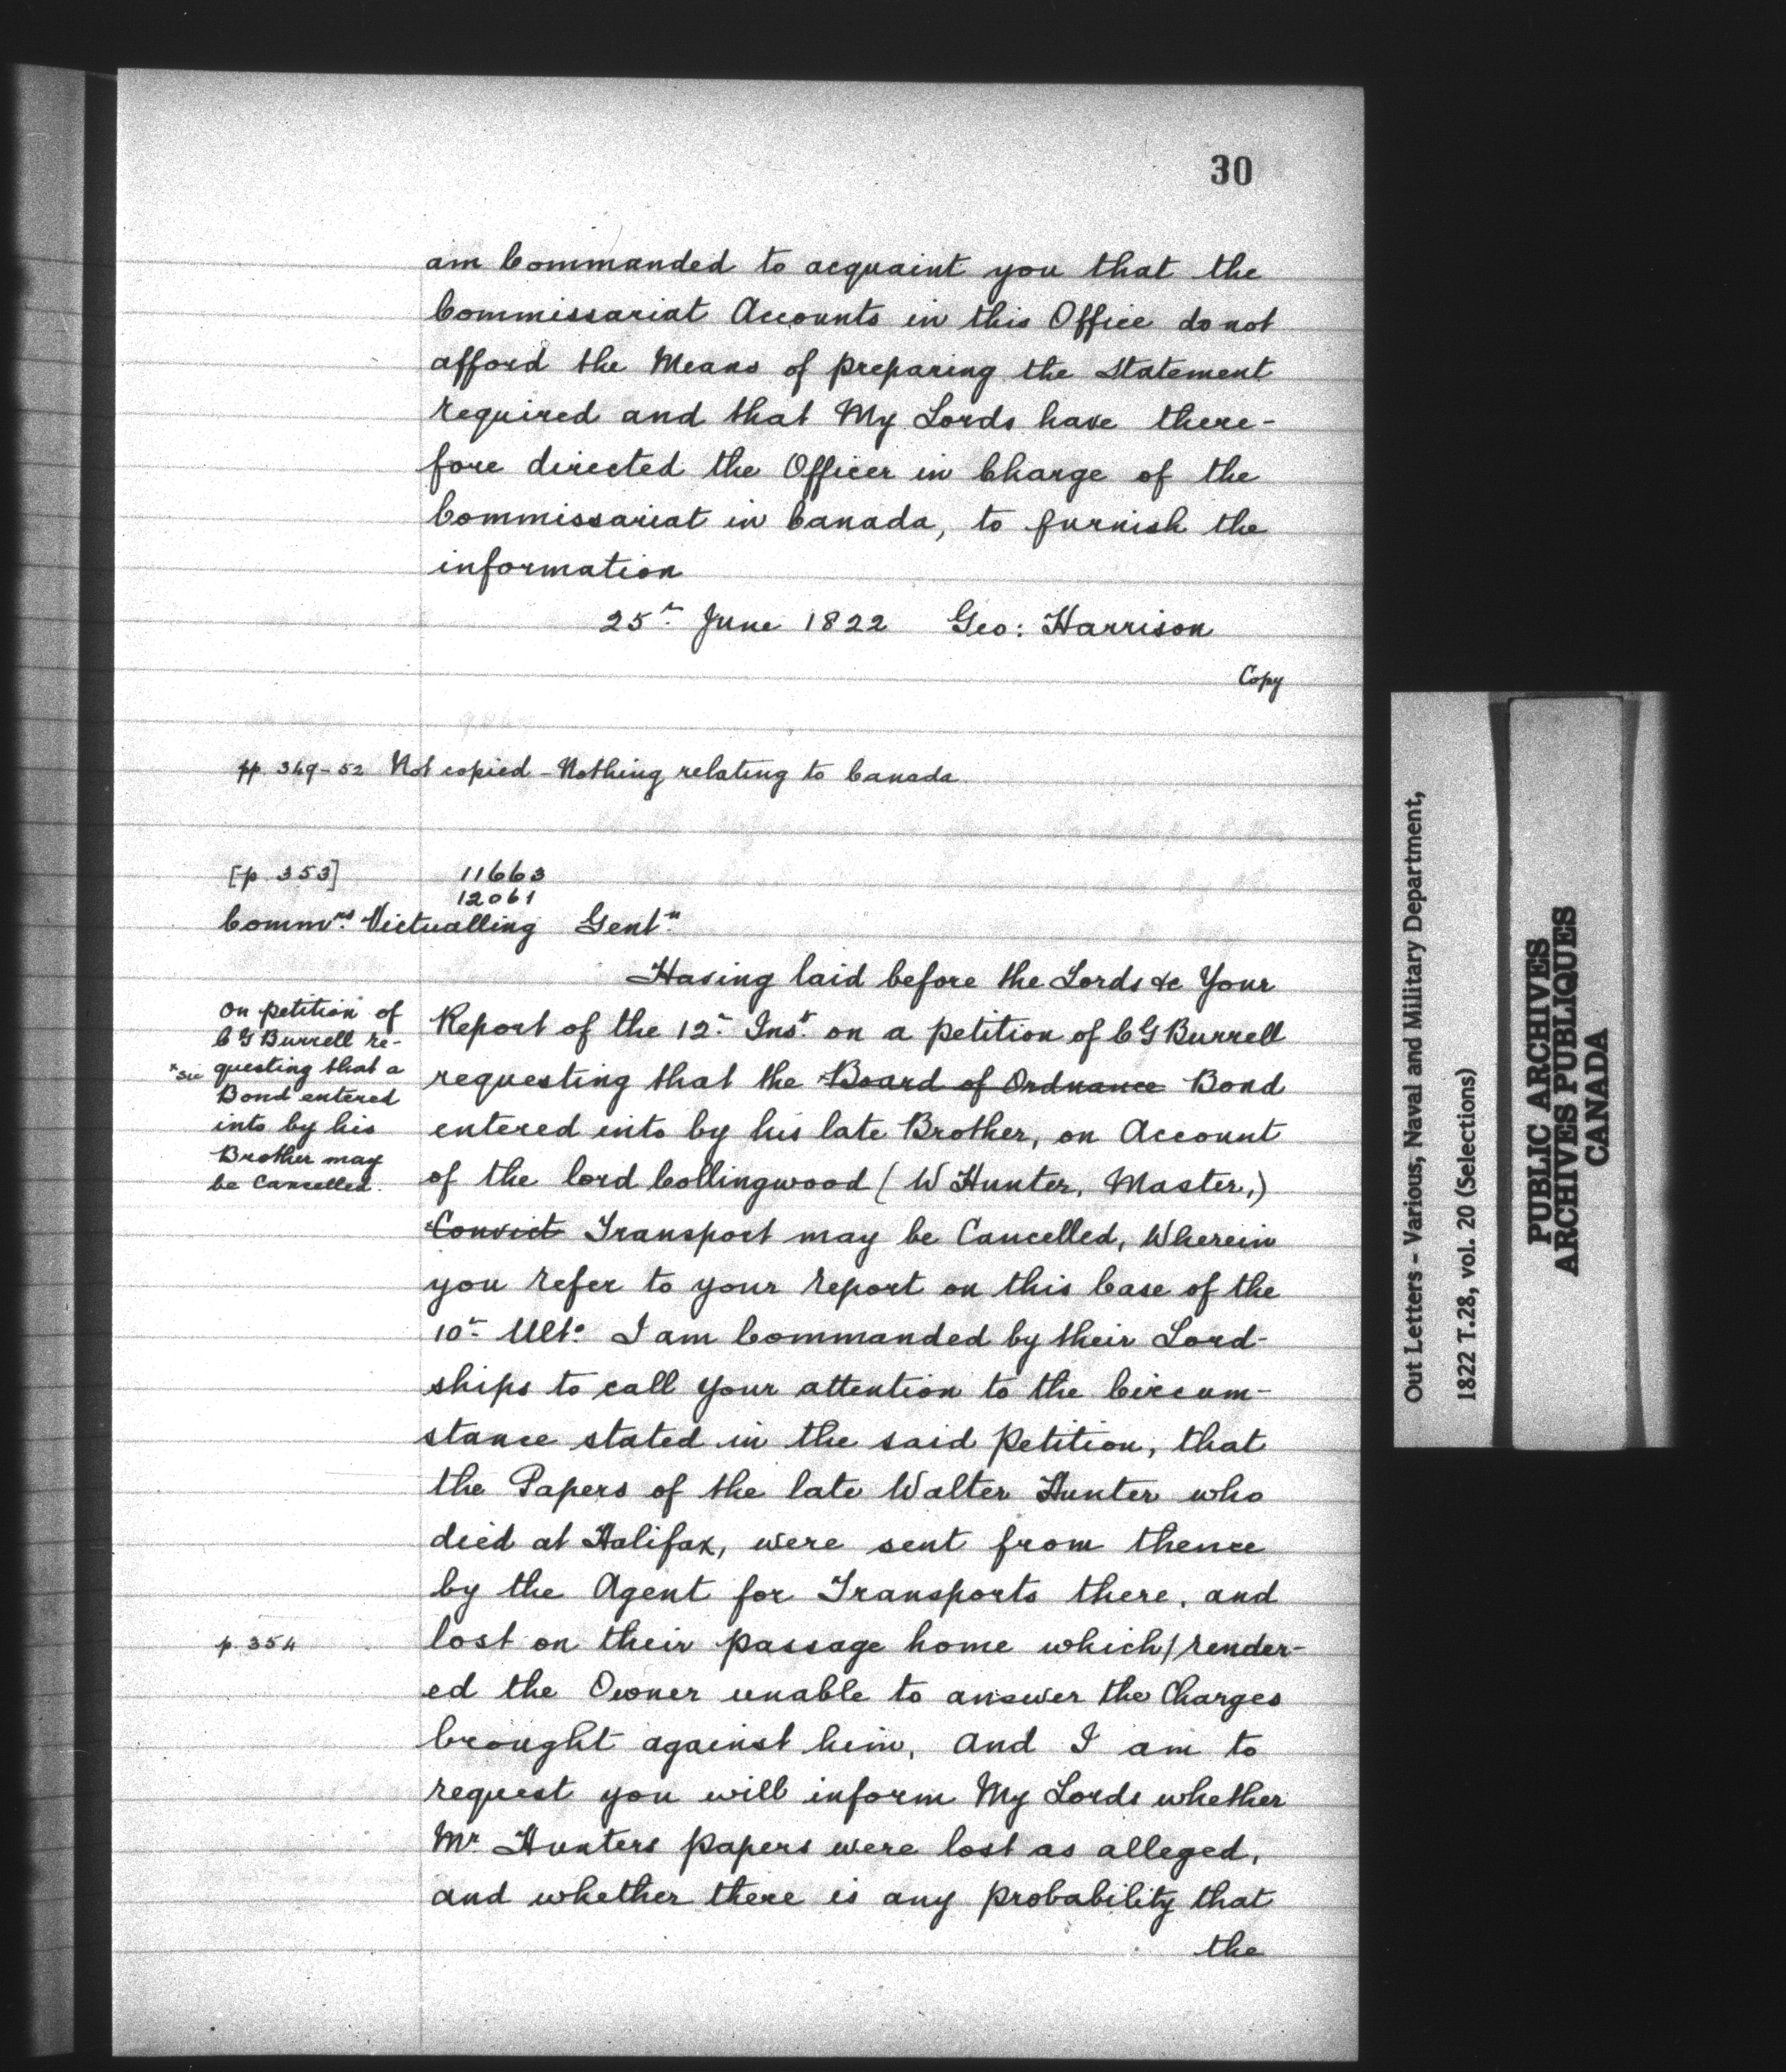 30
am Commanded to acquaint you that the
Commissariat Accounts in this Office do not
afford the Means of preparing the Statement
required and that My Lords have there-
fore directed the Officer in Charge of the
Commissariat in Canada, to furnish the
information
25th June 1822 Geo: Harrison
Copy
pp. 349-52 Not copied - Nothing relating to Canada.
[p. 353] 11663
12061
Commrs. Victualling Gentn
Having laid before the Lords &c Your
On petition of
C G Burrell re-
*sic questing that a
Bond entered
into by his
Brother may
be Cancelled.
Report of the 12th Inst. on a petition of C G Burrell
requesting that the *Board of Ordnance Bond
entered into by his late Brother, on Account
of the lord Collingwood (W Hunter, Master,)
*Convict Transport may be Cancelled, Wherein
you refer to your report on this Case of the
10th Ulto. I am Commanded by their Lord-
ships to call your attention to the Circum-
stance stated in the said Petition, that
the Papers of the late Walter Hunter who
died at Halifax, were sent from thence
by the Agent for Transports there, and
p. 354 lost on their passage home which/render-
ed the Owner unable to answer the Charges
brought against him, and I am to
request you will inform My Lords whether
Mr Hunters papers were lost as alleged,
and whether there is any probability that
the
Out Letters - Various, Naval and Military Department,
1822 T.28, vol. 20 (Selections)
PUBLIC ARCHIVES
ARCHIVES PUBLIQUES
CANADA